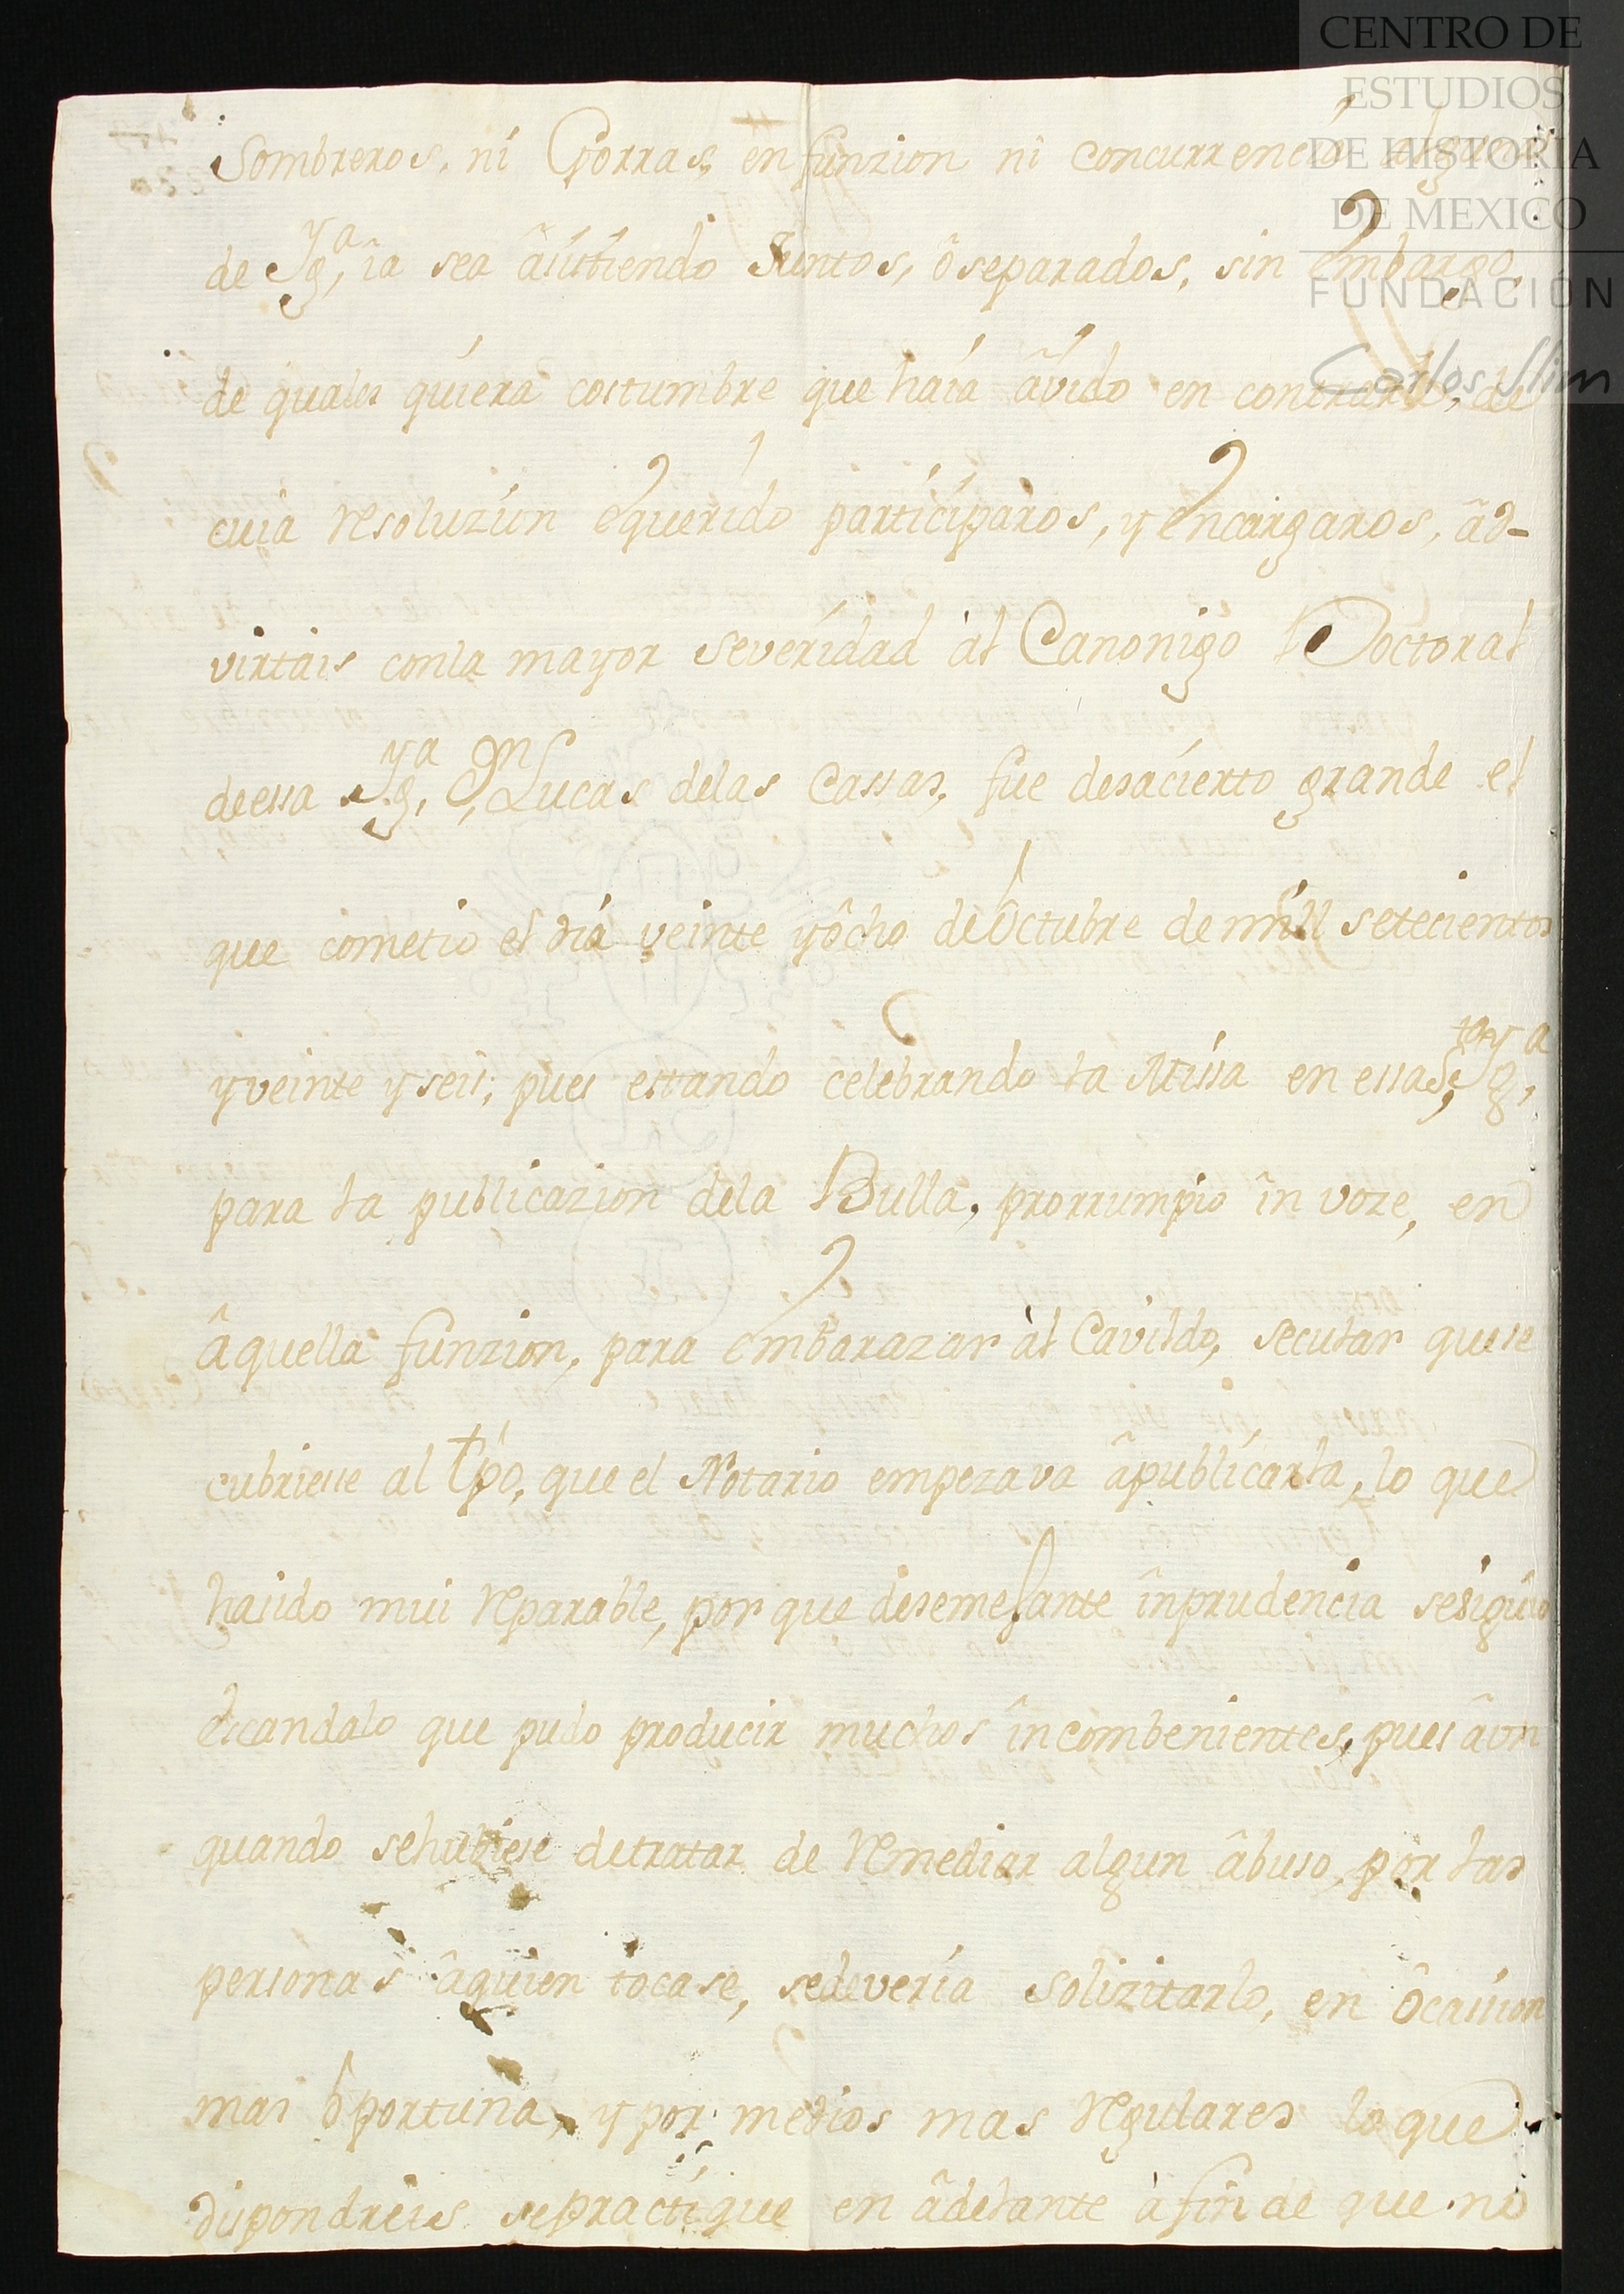 CENTRO DE
ESTUDIOS
DE HISTORIA
DE MEXICO
FUNDACIÓN
Carlos Slim
Sombreros, ni Gorras, en funzion ni concurrencia alguna
de Yg.ª, ia sea âsistiendo Juntos, ô separados, sin embargo,
de quales quiera costumbre que haia âvido en contrario, de
cuia resoluzion e querido participaros, y encargaros, âd-
virtais conla mayor severidad àl Canonigo Doctoral
de essa Yg.ya Dn Lucas delas Cassas, fue desacierto grande el
que cometio el dia veinte yôcho de Octubre de mill setecientos
y veinte y seis; pues estando celebrando la Missa en essa S.ta Yg.ª,
para la publicazion dela Bulla, prorrumpio în voze, en
âquella funzion, para embarazar àl Cavildo, secular quese
cubriesse al tpo, que el Notario empezava âpublicarla, lo que
hasido mui reparable, por que desemejante înprudencia sesiguio
escandalo que pudo producir muchos încombenientes, pues âvn
quando sehubiese detratar de remediar algun âbuso, por las
personas âquien tocase, sedeveria solizitarlo, en ôcassion
mas ôportuna, y por medios mas regulares lo que
dispondreis sepractique en âdelante à fin de que no